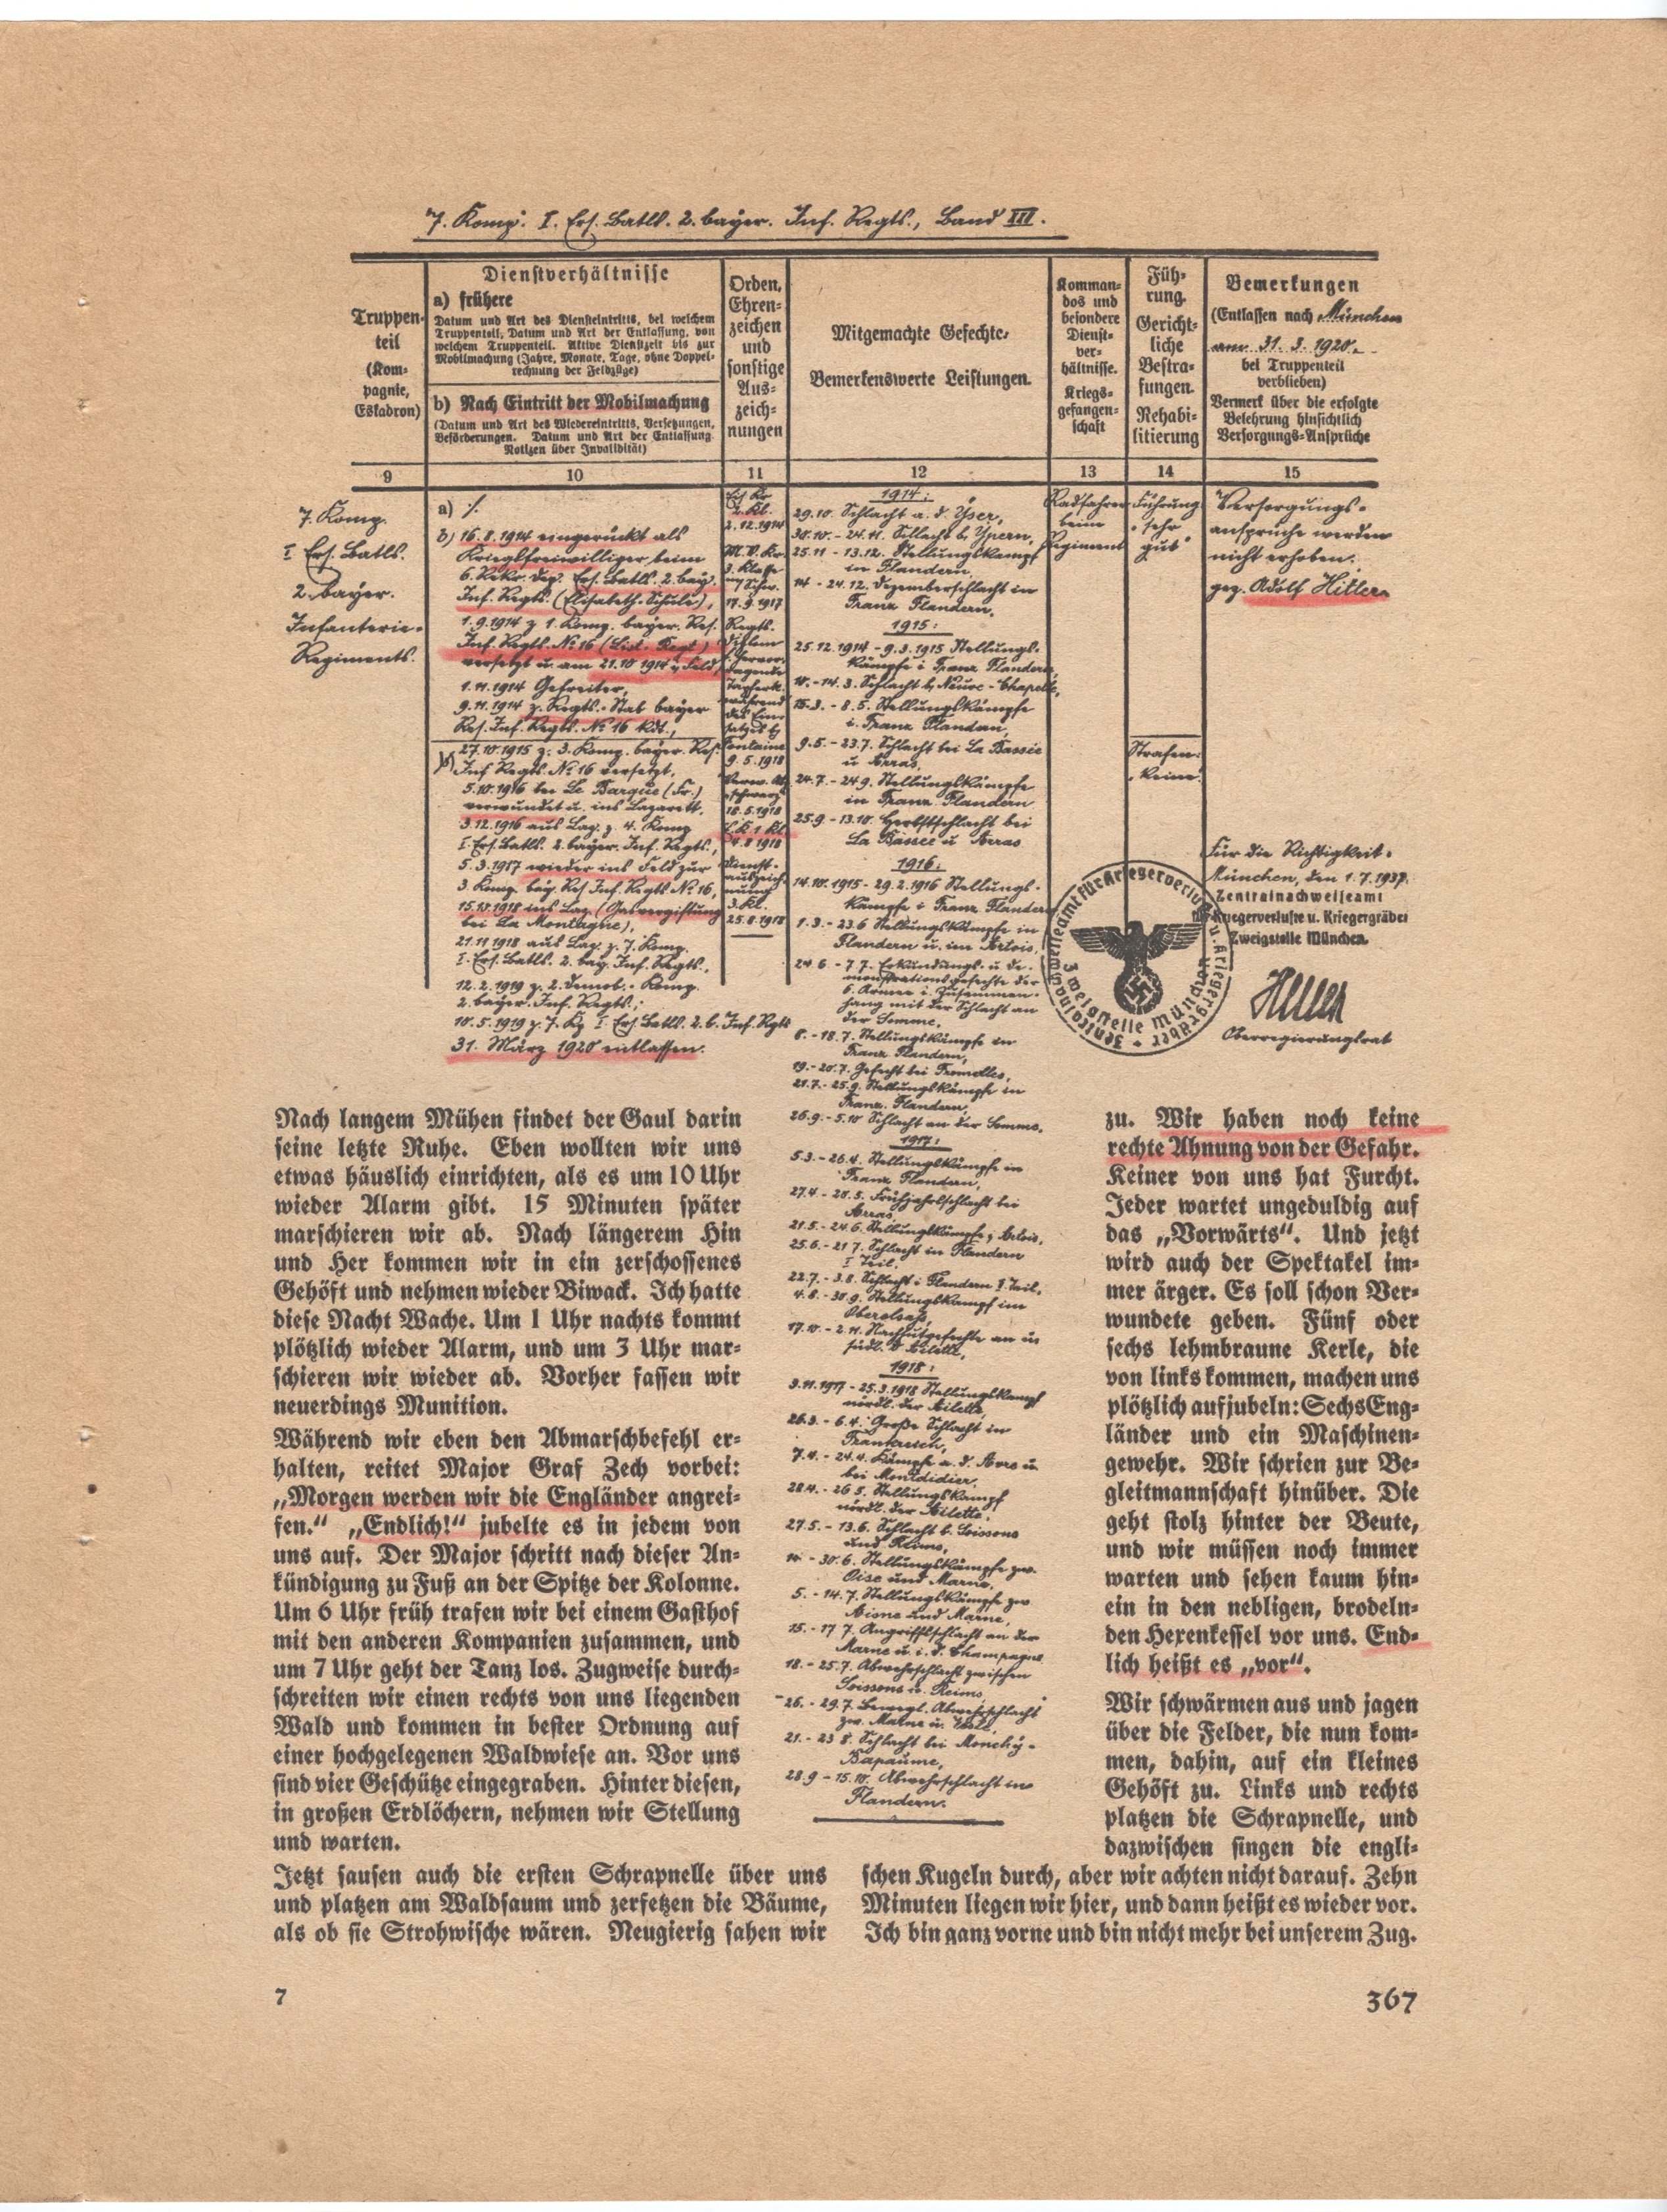 7. Komp. I. Ers. Batls. 2. bayer. Inf. Regts., Band III.
Truppen-
teil
(Kom-
pagnie,
Eskadron)
Dienstverhältnisse
a) frühere
Datum und Art des Diensteintritts, bei welchem
Truppenteil, Datum und Art der Entlassung, von
welchem Truppenteil. Aktive Dienstzeit bis zur
Mobilmachung (Jahre, Monate, Tage, ohne Doppel-
rechnung der Feldzüge)
b) Nach Eintritt der Mobilmachung
(Datum und Art des Wiedereintritts, Versetzungen,
Beförderungen. Datum und Art der Entlassung.
Notizen über Invalidität)
Orden,
Ehren-
zeichen
und
sonstige
Aus-
zeich-
nungen
Mitgemachte Gefechte.
Bemerkenswerte Leistungen.
Komman-
dos und
besondere
Dienst-
ver-
hältnisse.
Kriegs-
gefangen-
schaft
Füh-
rung.
Gericht-
liche
Bestra-
fungen.
Rehabi-
litierung
Bemerkungen
(Entlassen nach München
am 31. 3. 1920.
bei Truppenteil
verblieben)
Vermerk über die erfolgte
Belehrung hinsichtlich
Versorgungs-Ansprüche
9
10
11
12
13
14
15
7. Komp.
I Ers. Batls.
2. bayer.
Infanterie-
Regiments.
a) ٪
b) 16.8.1914 eingerückt als
Kriegsfreiwilliger beim
6. Rekr. Dep. Ers. Batls. 2. bay.
Inf. Regts. (Elisabeth-Schule),
1.9.1914 z 1. Komp. bayer. Res.
Inf. Regts. № 16 (List-Regt)
versetzt u. am 21.10 1914 i. Feld,
1.11.1914 Gefreiter,
9.11.1914 z. Regts.-Stab bayer
Res. Inf. Regts. № 16 kdt.,
27.10.1915 z. 3. Komp. bayer. Res.
Inf Regts. № 16 versetzt,
5.10.1916 bei Le Barque (Fr.)
verwundet u. ins Lazarett.
3.12.1916 aus Laz. z. 4. Komp
I. Ers. Batls. 2. bayer. Inf. Regts.,
5.3.1917 wieder ins Feld zur
3. Komp. bay. Res Inf. Regts № 16,
15.10.1918 ins Laz. (Gasvergiftung
bei La Montagne),
21.11 1918 aus Laz. z. 7. Komp.
I. Ers. Batls. 2. bay. Inf. Regts.,
12.2.1919 z. 2. Demob.-Komp.
2. bayer. Inf. Regts.;
10.5.1919 z. 7. Kp I. Ers. Batls. 2. b. Inf. Rgts
31. März 1920 entlassen.
Eis. Kr
2. Kl.
2.12.1914
M. V. Kr.
3. Klasse
m. Schw.
17.9.1917
Regts.
Diplom
f. hervor-
ragende
Tapferk.
während
des Ein-
satzes b.
Fontaine
9.5.1918
Verw. Ab.
schwarz
18.5.1918
E. K. 1. Kl.
4.8 1918
Dienst-
auszeich-
nung
3. Kl.
25.8.1918
1914:
29.10. Schlacht a. d. Yser,
30.10. - 24.11. Schlacht b. Ypern,
25.11 - 13.12. Stellungskampf
in Flandern,
14 - 24.12. Dezemberschlacht in
Franz Flandern,
1915:
25.12.1914 - 9.3.1915 Stellungs-
kämpfe i Franz Flandern,
10. - 14.3. Schlacht b, Neuve-Chapelle,
15.3. - 8.5. Stellungskämpfe
i. Franz Flandern,
9.5. - 23.7. Schlacht bei La Bassée
u Arras,
24.7. - 24.9. Stellungskämpfe
in Franz Flandern
25.9 - 13.10. Herbstschlacht bei
La Bassée u Arras
1916:
14.10.1915 - 29.2.1916 Stellungs-
kämpfe i Franz Flandern
1.3. - 23.6 Stellungskämpfe in
Flandern u. im Artois,
24 6. - 7 7. Erkundungs- u De-
monstrationsgefechte der
6. Armee i. Zusammen-
hang mit der Schlacht an
der Somme,
8. - 18.7. Stellungskämpfe in
Franz Flandern,
19. - 20.7. Gefecht bei Fromelles,
21.7. - 25.9. Stellungskämpfe in
Franz. Flandern,
26.9. - 5.10 Schlacht an der Somme.
1917:
5.3. - 26.4. Stellungskämpfe in
Franz Flandern,
27.4 - 20.5. Frühjahrsschlacht bei
Arras
21.5. - 24.6. Stellungskämpfe i Artois,
25.6. - 21 7. Schlacht in Flandern
I Teil.
22.7. - 3.8. Schlacht i Flandern I. Teil,
4.8. - 30.9. Stellungskampf im
Oberelsaß,
17.10. - 2.11. Nachhutgefechte an u
südl. d Ailette,
1918:
3.11.1917 - 25.3.1918 Stellungskampf
nördl. der Ailette,
26.3. - 6.4. Große Schlacht in
Frankreich,
7.4. - 24.4. Kämpfe a. d. Avre u
bei Montdidier,
28.4. - 26 5. Stellungskampf
nördl. der Ailette,
27.5. - 13.6. Schlacht b. Soissons
und Reims,
14 - 30.6. Stellungskämpfe zw.
Oise und Marne,
5. - 14.7. Stellungskämpfe zw
Aisne und Marne,
15. - 17 7. Angriffsschlacht an der
Marne u i. d. Champagne
18. - 25.7. Abwehrschlacht zwischen
Soissons u. Reims,
26. - 29.7. Bewegl. Abwehrschlacht
zw. Marne u. Vesle,
21. - 23 8. Schlacht bei Monchy-
Bapaume,
28.9 - 15.10. Abwehrschlacht in
Flandern.
Radfahrer
beim
Regiment
Führung
sehr
gut
Strafen:
keine
Versorgungs-
ansprüche werden
nicht erhoben.
gez. Adolf Hitler
Für die Richtigkeit.
München, den 1.7.1937.
Zentralnachweiseamt
für Kriegerverluste u. Kriegergräber
Zweigstelle München.
Oberregierungsrat
Zentralnachweiseamt für Kriegerverluste u. Kriegergräber
Zweigstelle München
Nach langem Mühen findet der Gaul darin
seine letzte Ruhe. Eben wollten wir uns
etwas häuslich einrichten, als es um 10 Uhr
wieder Alarm gibt. 15 Minuten später
marschieren wir ab. Nach längerem Hin
und Her kommen wir in ein zerschossenes
Gehöft und nehmen wieder Biwack. Ich hatte
diese Nacht Wache. Um 1 Uhr nachts kommt
plötzlich wieder Alarm, und um 3 Uhr mar-
schieren wir wieder ab. Vorher fassen wir
neuerdings Munition.
Während wir eben den Abmarschbefehl er-
halten, reitet Major Graf Zech vorbei:
„Morgen werden wir die Engländer angrei-
fen.“ „Endlich!“ jubelte es in jedem von
uns auf. Der Major schritt nach dieser An-
kündigung zu Fuß an der Spitze der Kolonne.
Um 6 Uhr früh trafen wir bei einem Gasthof
mit den anderen Kompanien zusammen, und
um 7 Uhr geht der Tanz los. Zugweise durch-
schreiten wir einen rechts von uns liegenden
Wald und kommen in bester Ordnung auf
einer hochgelegenen Waldwiese an. Vor uns
sind vier Geschütze eingegraben. Hinter diesen,
in großen Erdlöchern, nehmen wir Stellung
und warten.
Jetzt sausen auch die ersten Schrapnelle über uns
und platzen am Waldsaum und zerfetzen die Bäume,
als ob sie Strohwische wären. Neugierig sahen wir
zu. Wir haben noch keine
rechte Ahnung von der Gefahr.
Keiner von uns hat Furcht.
Jeder wartet ungeduldig auf
das „Vorwärts“. Und jetzt
wird auch der Spektakel im-
mer ärger. Es soll schon Ver-
wundete geben. Fünf oder
sechs lehmbraune Kerle, die
von links kommen, machen uns
plötzlich aufjubeln: Sechs Eng-
länder und ein Maschinen-
gewehr. Wir schrien zur Be-
gleitmannschaft hinüber. Die
geht stolz hinter der Beute,
und wir müssen noch immer
warten und sehen kaum hin-
ein in den nebligen, brodeln-
den Hexenkessel vor uns. End-
lich heißt es „vor“.
Wir schwärmen aus und jagen
über die Felder, die nun kom-
men, dahin, auf ein kleines
Gehöft zu. Links und rechts
platzen die Schrapnelle, und
dazwischen singen die engli-
schen Kugeln durch, aber wir achten nicht darauf. Zehn
Minuten liegen wir hier, und dann heißt es wieder vor.
Ich bin ganz vorne und bin nicht mehr bei unserem Zug.
7
367